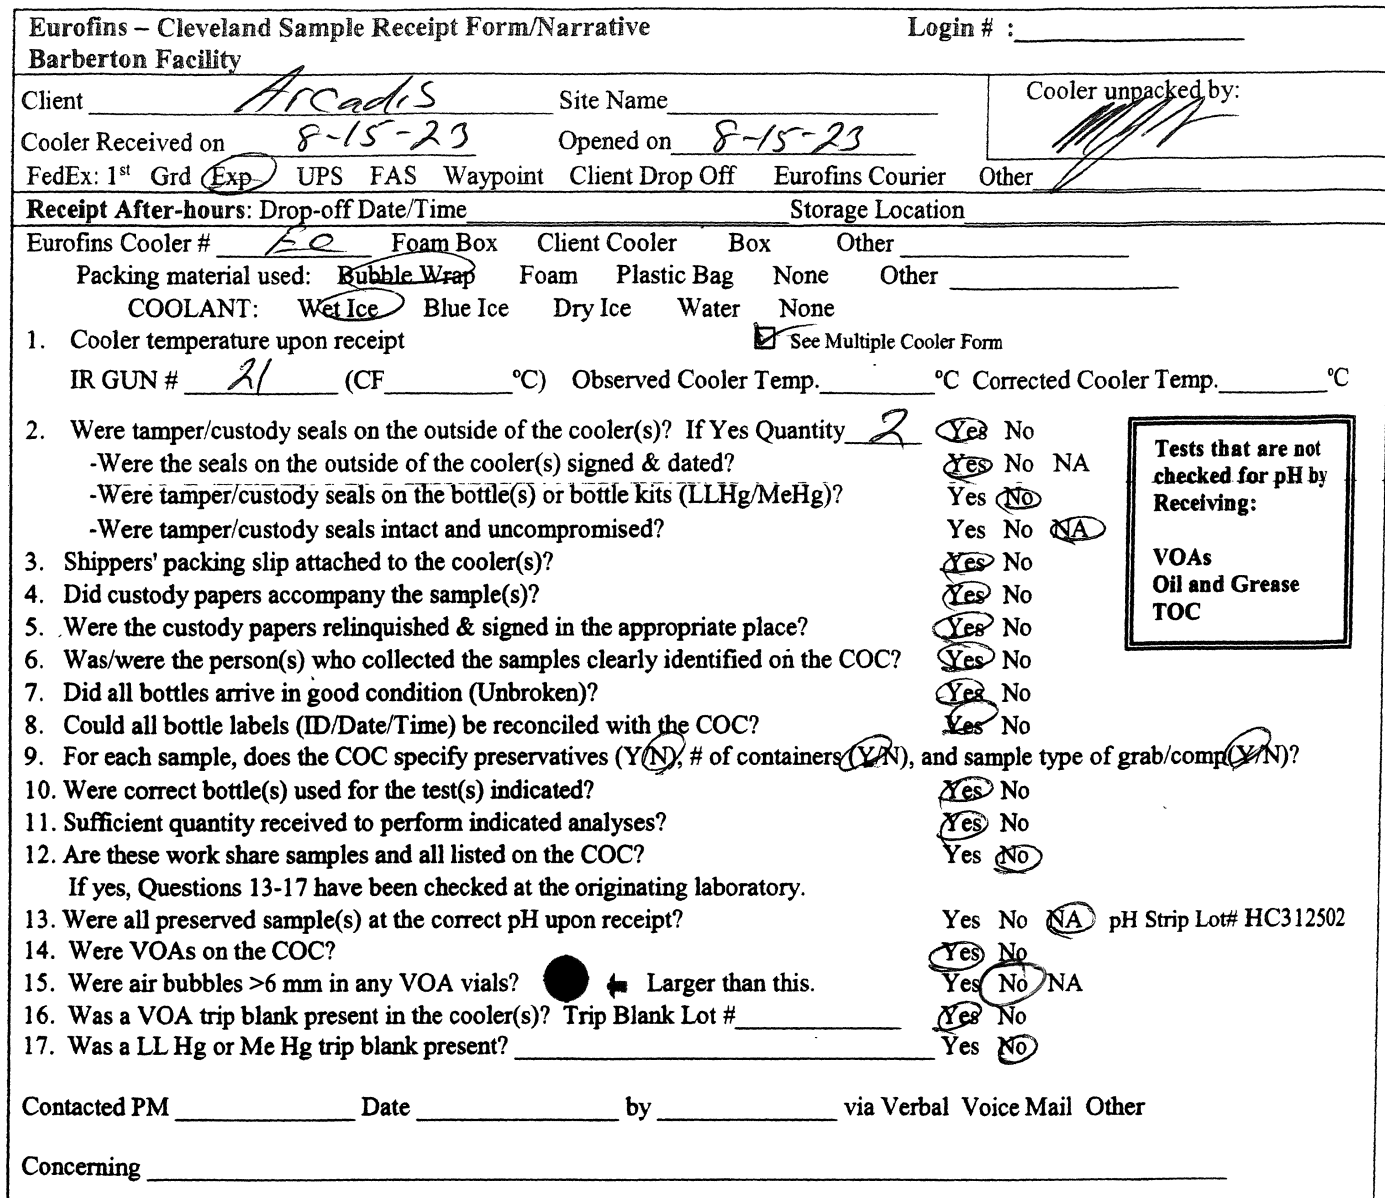 Eurofins – Cleveland Sample Receipt Form/Narrative Login # :
Barberton Facility
Client Arcadis Site Name Cooler unpacked by:
Cooler Received on 8-15-23 Opened on 8-15-23
FedEx: 1st Grd Exp UPS FAS Waypoint Client Drop Off Eurofins Courier Other
Receipt After-hours: Drop-off Date/Time Storage Location
Eurofins Cooler # EC Foam Box Client Cooler Box Other
Packing material used: Bubble Wrap Foam Plastic Bag None Other
COOLANT: Wet Ice Blue Ice Dry Ice Water None
1. Cooler temperature upon receipt See Multiple Cooler Form
IR GUN # 21 (CF °C) Observed Cooler Temp. °C Corrected Cooler Temp. °C
2. Were tamper/custody seals on the outside of the cooler(s)? If Yes Quantity 2 Yes No
-Were the seals on the outside of the cooler(s) signed & dated? Yes No NA
-Were tamper/custody seals on the bottle(s) or bottle kits (LLHg/MeHg)? Yes No
-Were tamper/custody seals intact and uncompromised? Yes No NA
Tests that are not
checked for pH by
Receiving:
VOAs
Oil and Grease
TOC
3. Shippers' packing slip attached to the cooler(s)? Yes No
4. Did custody papers accompany the sample(s)? Yes No
5. Were the custody papers relinquished & signed in the appropriate place? Yes No
6. Was/were the person(s) who collected the samples clearly identified on the COC? Yes No
7. Did all bottles arrive in good condition (Unbroken)? Yes No
8. Could all bottle labels (ID/Date/Time) be reconciled with the COC? Yes No
9. For each sample, does the COC specify preservatives (Y/N), # of containers (Y/N), and sample type of grab/comp(Y/N)?
10. Were correct bottle(s) used for the test(s) indicated? Yes No
11. Sufficient quantity received to perform indicated analyses? Yes No
12. Are these work share samples and all listed on the COC? Yes No
If yes, Questions 13-17 have been checked at the originating laboratory.
13. Were all preserved sample(s) at the correct pH upon receipt? Yes No NA pH Strip Lot# HC312502
14. Were VOAs on the COC? Yes No
15. Were air bubbles >6 mm in any VOA vials? Larger than this. Yes No NA
16. Was a VOA trip blank present in the cooler(s)? Trip Blank Lot # Yes No
17. Was a LL Hg or Me Hg trip blank present? Yes No
Contacted PM Date by via Verbal Voice Mail Other
Concerning